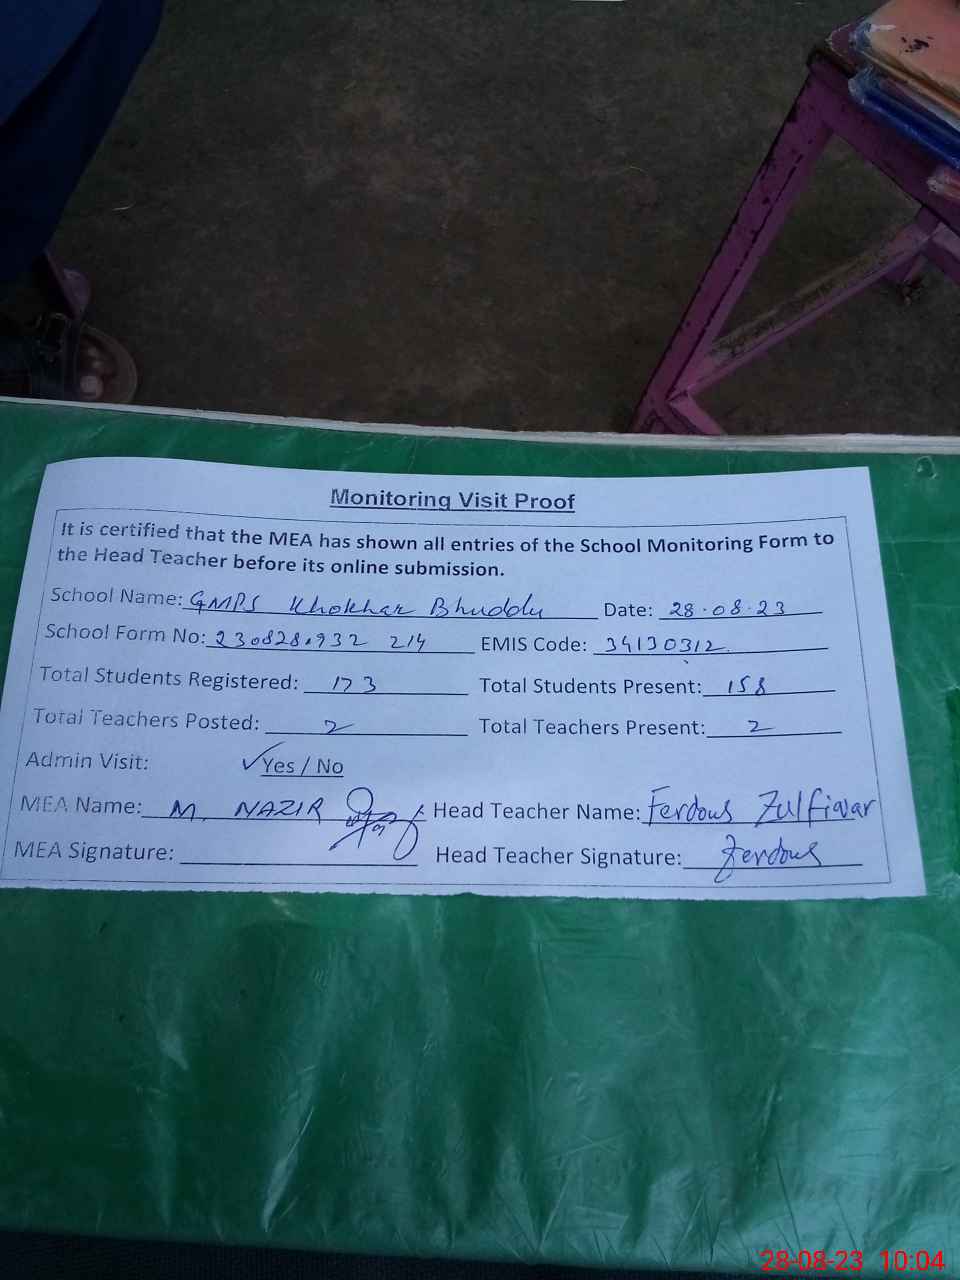 Monitoring Visit Proof
It is certified that the MEA has shown all entries of the School Monitoring Form to
the Head Teacher before its online submission.
School Name: GMPS Khokhar Bhuddu Date: 28.08.23
School Form No: 230828.932 214 EMIS Code: 34130312
Total Students Registered: 173 Total Students Present: 158
Total Teachers Posted: 2 Total Teachers Present: 2
Admin Visit: ✓Yes / No
MEA Name: M. NAZIR Head Teacher Name: Ferdous Zulfiqar
MEA Signature: Head Teacher Signature: Ferdous
28-08-23 10:04